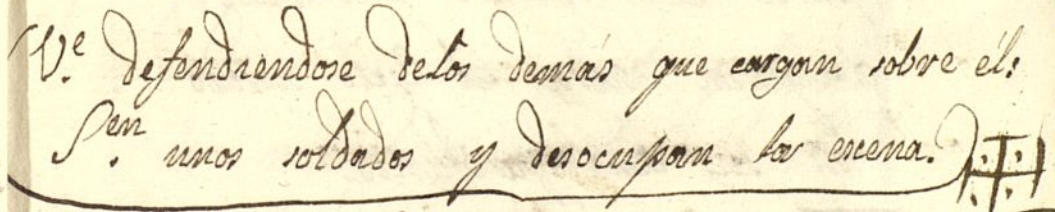 (V.e defendiendose delos demás que cargan sobre él:
S.en unos soldados y desocupan la escena.)